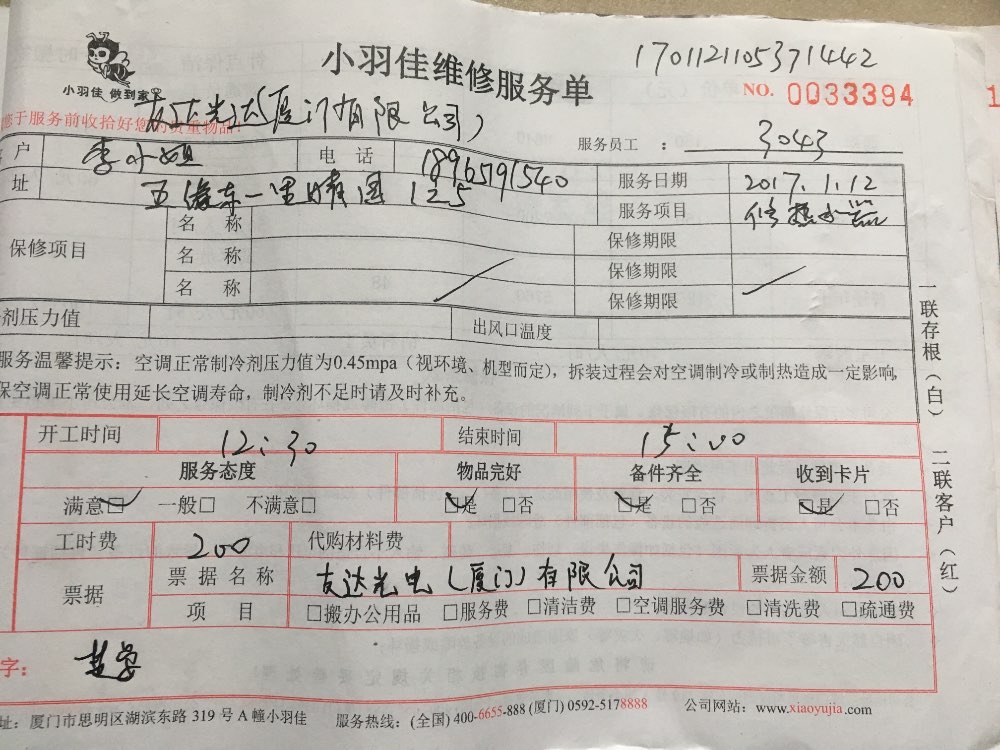 小羽佳 做到家
小羽佳维修服务单
1701121105371442
NO. 0033394
友达光达(厦门有限公司)
于服务前收拾好您的贵重物品!
服务员工 : 3043
户 李小姐 电话 18965191540 服务日期 2017.1.12
址 五缘东一里晴园 125 服务项目 修热水器
保修项目
名 称 保修期限
名 称 保修期限
名 称 保修期限
剂压力值 出风口温度
服务温馨提示:空调正常制冷剂压力值为0.45mpa(视环境、机型而定),拆装过程会对空调制冷或制热造成一定影响,
保空调正常使用延长空调寿命,制冷剂不足时请及时补充。
开工时间 12:30 结束时间 15:00
服务态度 物品完好 备件齐全 收到卡片
满意☑ 一般□ 不满意□ ☑是 □否 ☑是 □否 ☑是 □否
工时费 200 代购材料费
票据 票据名称 友达光电(厦门)有限公司 票据金额 200
项 目 □搬办公用品 □服务费 □清洁费 □空调服务费 □清洗费 □疏通费
字:
址:厦门市思明区湖滨东路 319 号 A 幢小羽佳 服务热线:(全国) 400-6655-888 (厦门) 0592-5178888 公司网站:www.xiaoyujia.com
一联存根(白) 二联客户(红)